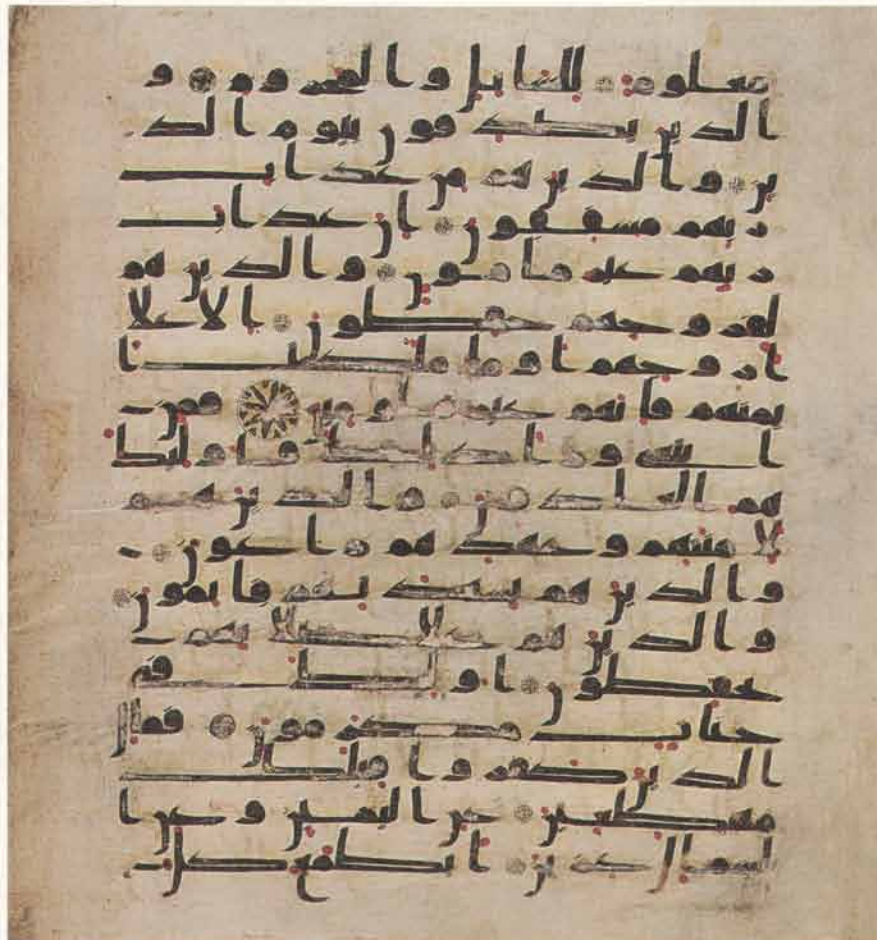 معلوم للسائل والمحروم و
الذين يصدقون بيوم الد
ين والذين هم من عذاب
ربهم مشفقون ان عذاب
ربهم غير مامون والذين هم
لفروجهم حفظون الا علا
ازوجهم او ما ملكت ا
يمنهم فانهم غير ملومين فمن
ابتغى ورا ذلك فاوليك
هم العادون والذين هم
لامنتهم وعهدهم راعون
والذين هم بشهدتهم قايمون
والذين هم على صلاتهم ي
حفظون اوليك في
جنات مكرمون فمال
الذين كفروا قبلك
مهطعين عن اليمين وعن ا
لشمال عزين ايطمع كل